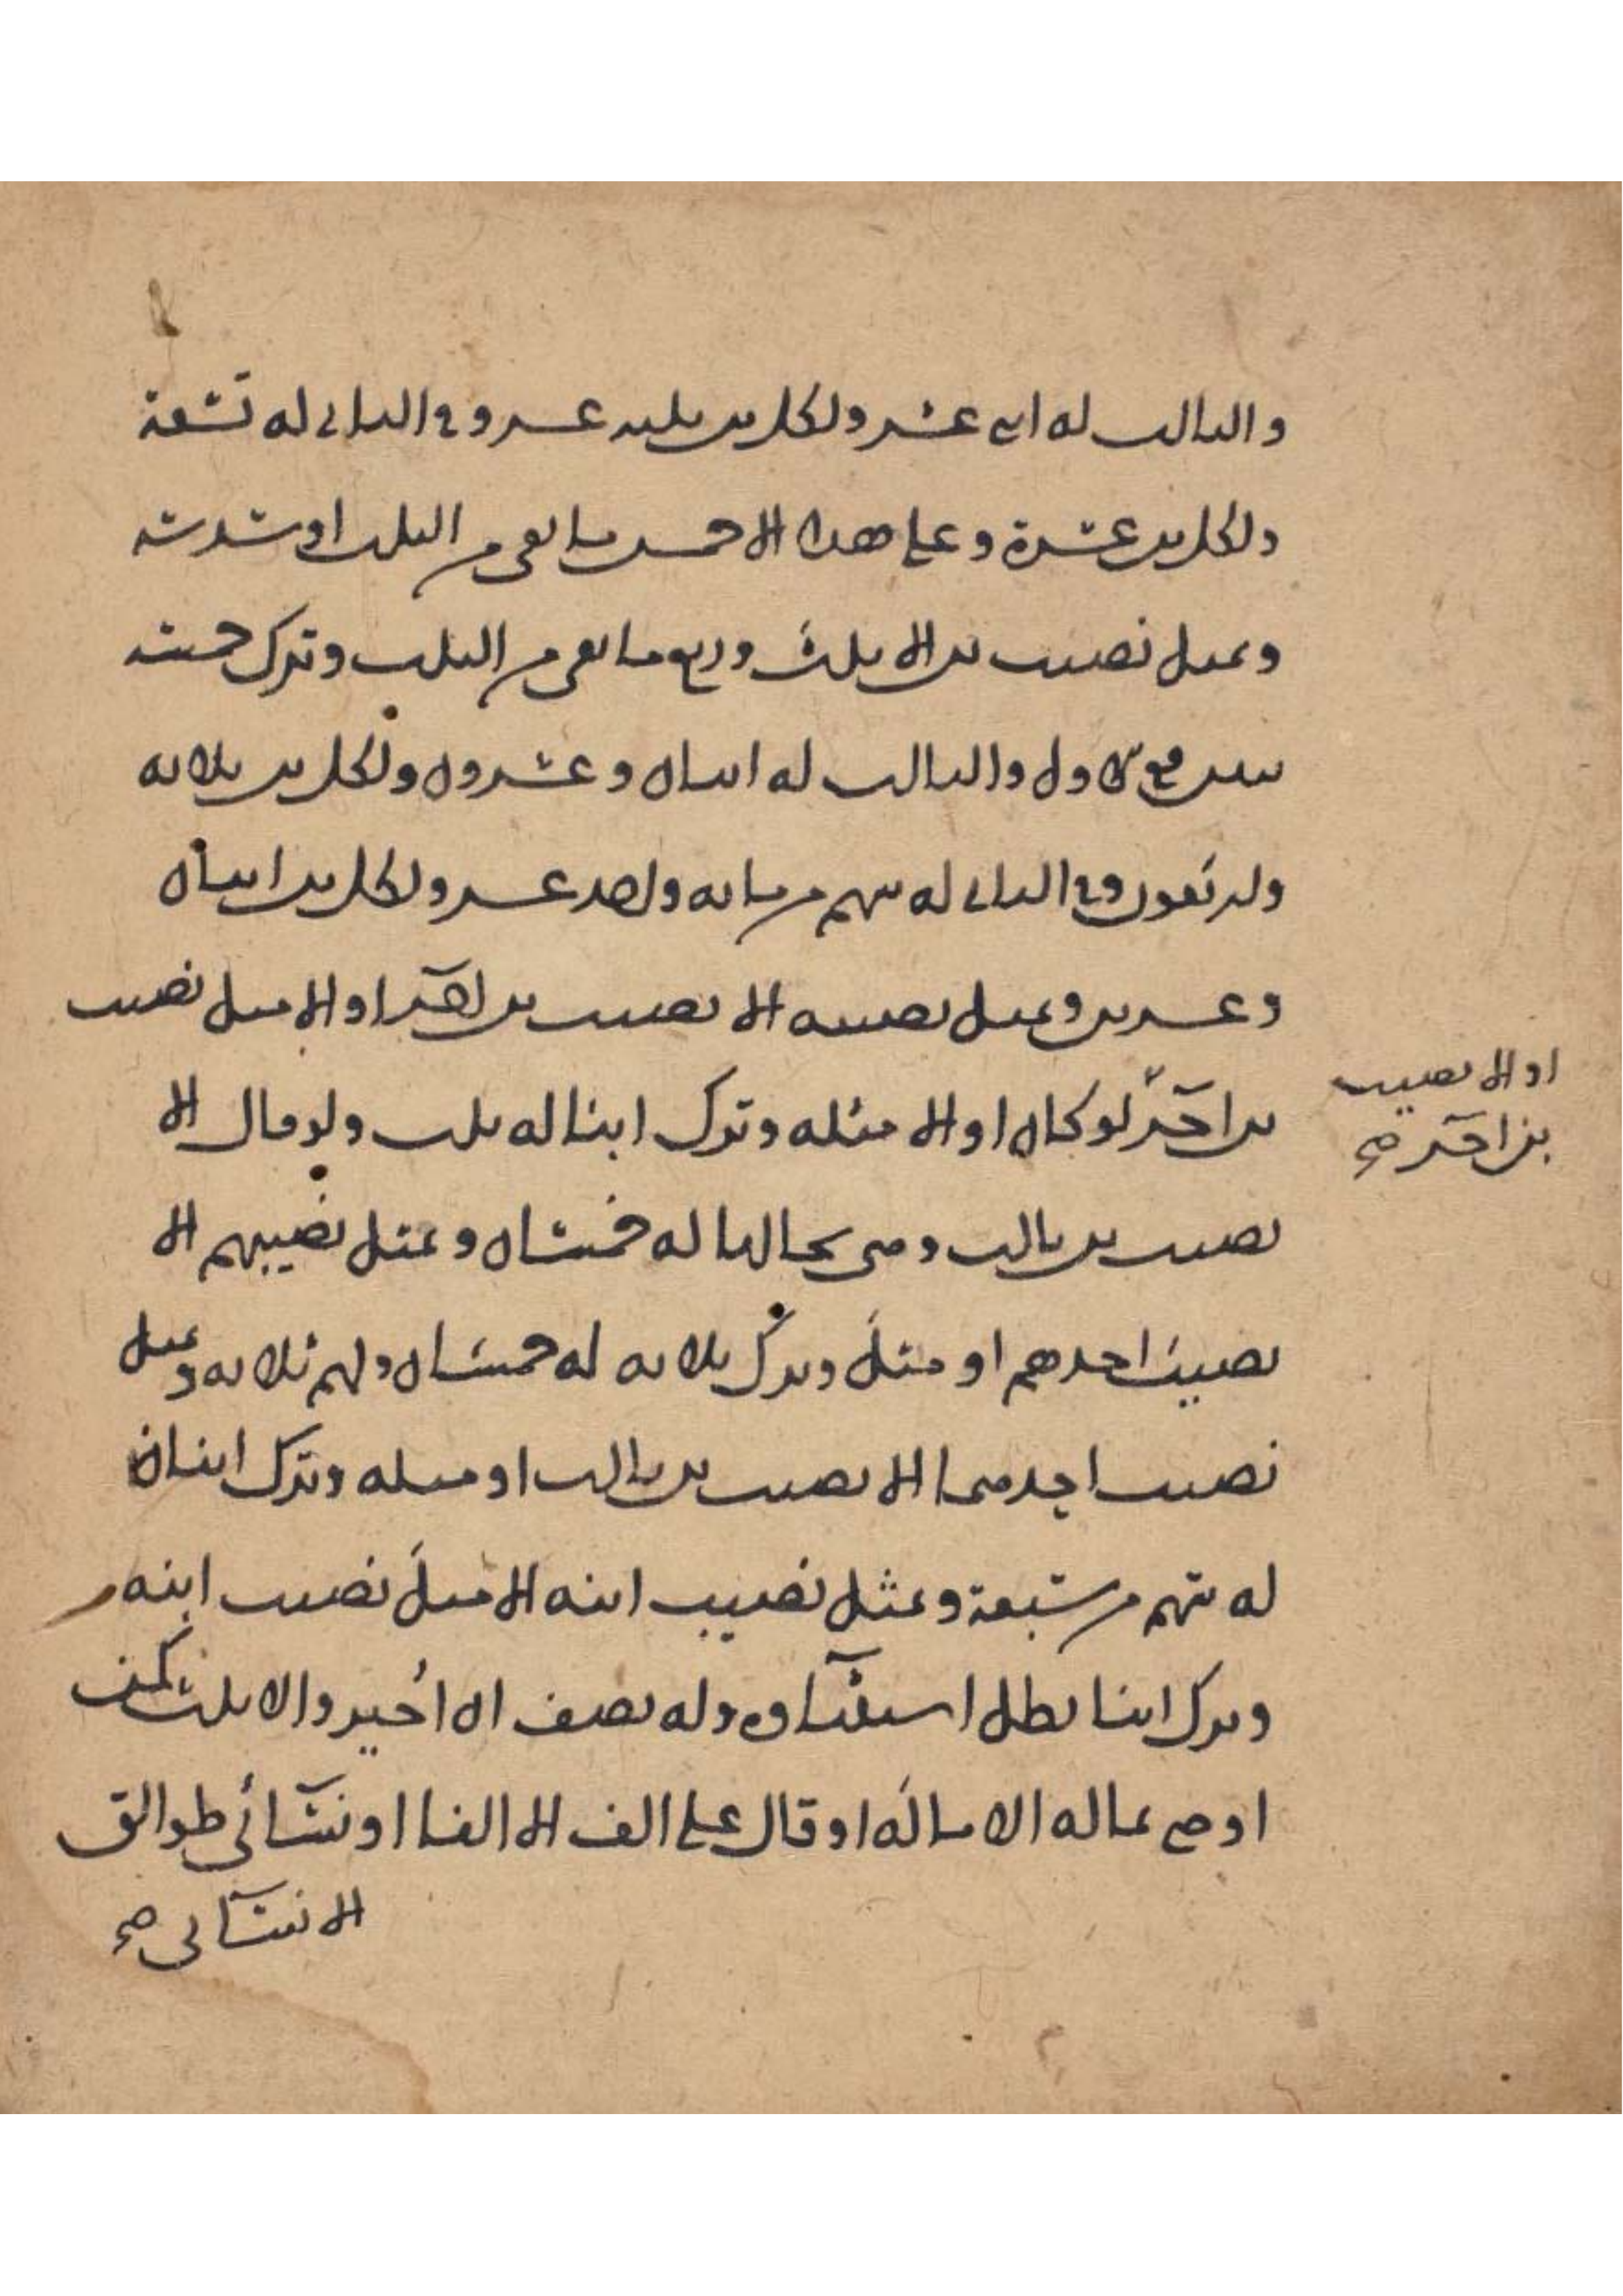 والثالث له اثنى عشر ولكل بنت ثلثه عشر وفي الثاني له تسعة
ولكل بنت عشرة وعلى هذا الا خمس ما بقي من الثلث او سدسه
وبمثل نصيب بنت الا ثلث وربع ما بقي من الثلث وترك خمسة
بنين ففي الاول والثالث له اثنان وعشرون ولكل بنت ثلاثه
واربعون وفي الثاني له سهم من مائه واحد عشر ولكل بنت اثنان
وعشرين وبمثل نصيبه الا نصيب بن اخر او الا مثل نصيب
او الا نصيب
بن اخر صح
بن اخر لو كان او الا مثله وترك ابنا له ثلث ولو قال الا
نصيب بن ثالث ومن بحالها له خمسان وبمثل نصيبهم الا
نصيب احدهم او مثل وترك ثلاثه له خمسان ولهم ثلاثه وبمثل
نصيب احدهما الا نصيب بن ثالث او مثله وترك ابنان
له سهم من سبعة وبمثل نصيب ابنه الا مثل نصيب ابنه
وترك ابنا بطل استثناوه وله نصف ان اجيز والا ثلث كمن
اوصى بماله الا ماله او قال على الف الا الفا او نسائي طوالق
الا نسائى صح